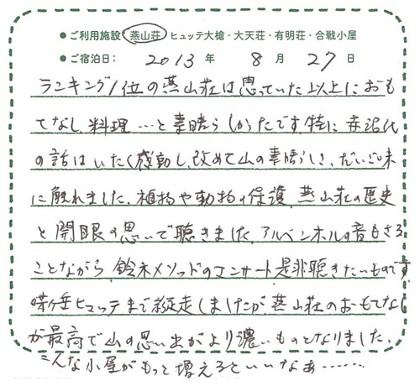 ●ご利用施設 燕山荘 ヒュッテ大槍・大天荘・有明荘・合戦小屋
●ご宿泊日: 2013 年 8 月 27 日
ランキング1位の燕山荘は思っていた以上におも
てなし、料理…と素晴らしかったです。特に赤沼氏
の話はいたく感動し、改めて山の素晴らしさ、だいご味
に触れました。植物や動物の保護、燕山荘の歴史
と開眼の思いで聴きました。アルペンホルの音もさる
ことながら、鈴木メソッドのコンサート是非聴きたいものです
ヒュッテまで縦走しましたが燕山荘のおもてなし
が最高で山の思い出がより濃いものとなりました。
こんな小屋がもっと増えるといいなぁ……